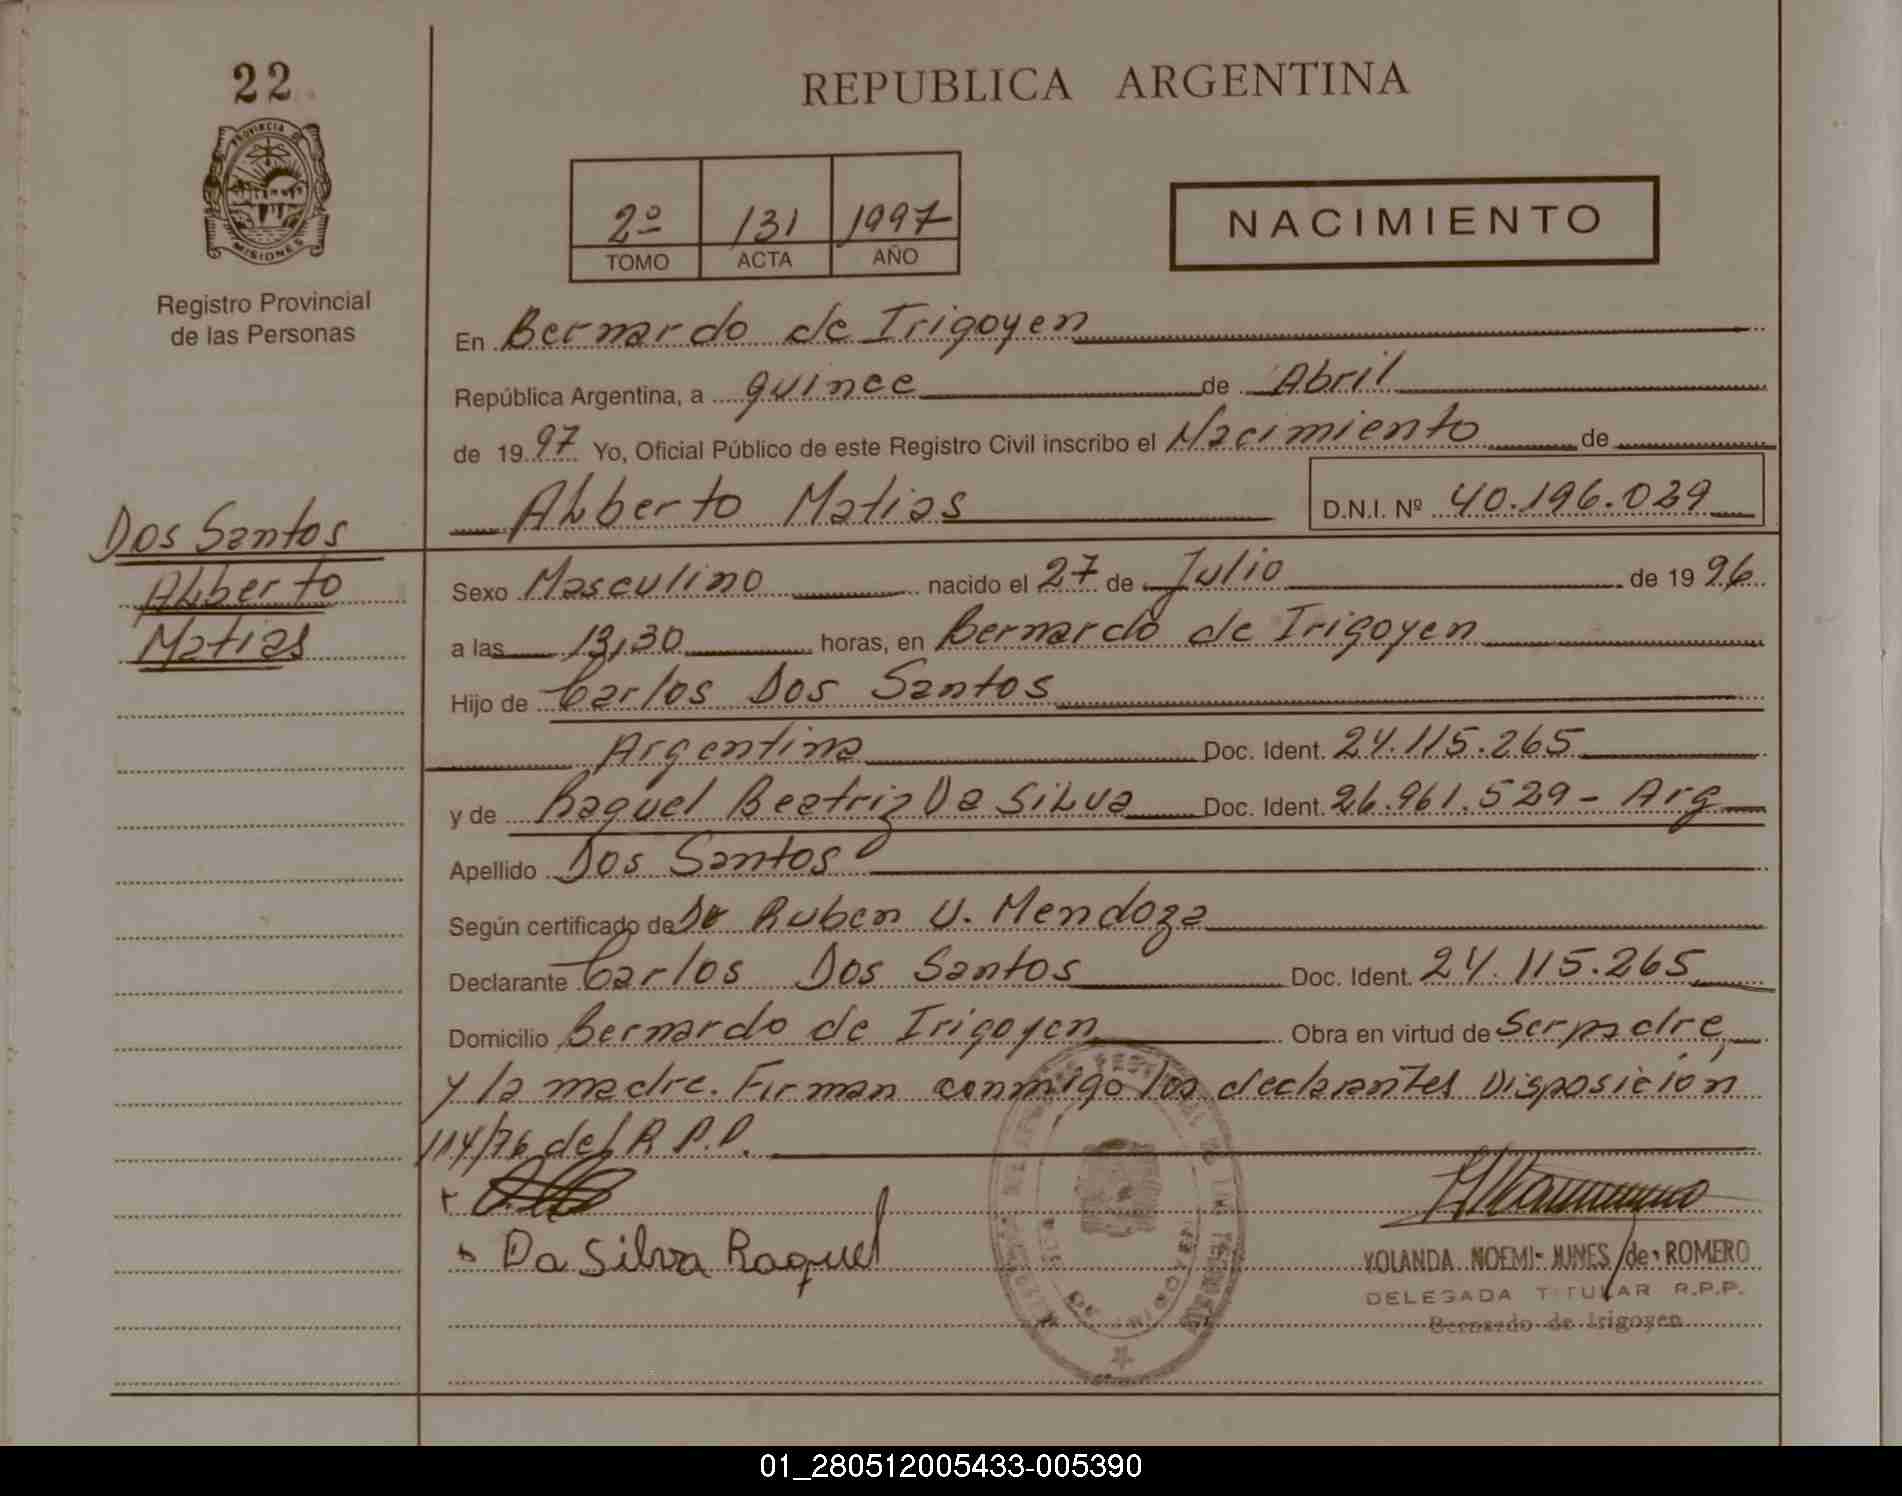 22
PROVINCIA DE
MISIONES
Registro Provincial
de las Personas
REPUBLICA ARGENTINA
2º 131 1997
TOMO ACTA AÑO
NACIMIENTO
En Bernardo de Irigoyen
República Argentina, a quince de Abril
de 1997 Yo, Oficial Público de este Registro Civil inscribo el Nacimiento de
Alberto Matias D.N.I. Nº 40.196.029
Dos Santos
Alberto
Matias
Sexo Masculino nacido el 27 de Julio de 1996
a las 13,30 horas, en Bernardo de Irigoyen
Hijo de Carlos Dos Santos
Argentina Doc. Ident. 24.115.265
y de Raquel Beatriz Da Silva Doc. Ident. 26.961.529 - Arg
Apellido Dos Santos
Según certificado de Dr Ruben U. Mendoza
Declarante Carlos Dos Santos Doc. Ident. 24.115.265
Domicilio Bernardo de Irigoyen Obra en virtud de Ser padre,
y la madre. Firman conmigo los declarantes Disposición
114/76 del R.P.P.
Da Silva Raquel
YOLANDA NOEMI JUNES de ROMERO
DELEGADA TITULAR R.P.P.
Bernardo de Irigoyen
01_280512005433-005390